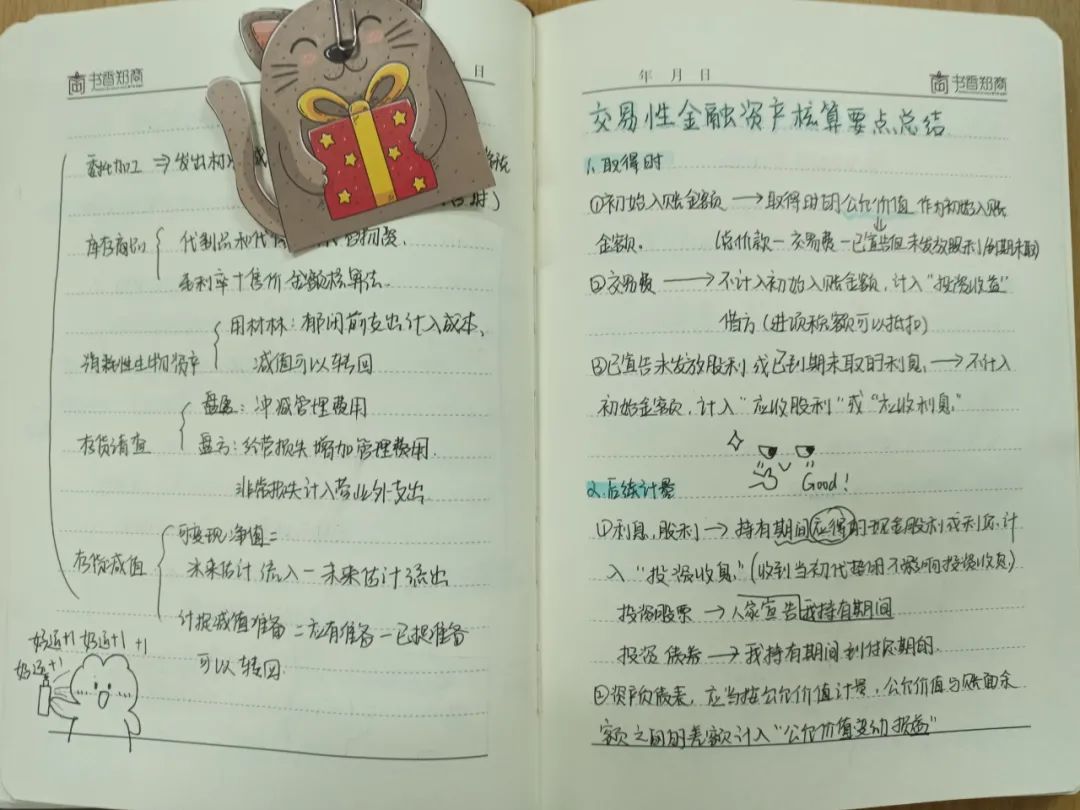 书香郑商
日
委托加工 ⇒ 发出材
库存商品 代制品和代
毛利率+售价金额核算法.
消耗性生物资产 用材林：郁闭前支出计入成本、
减值可以转回
存货清查 盘盈：冲减管理费用
盘亏：经营损失增加管理费用.
非常损失计入营业外支出
存货减值 可变现净值=
未来估计流入－未来估计流出
计提减值准备=应有准备－已提准备
可以转回.
好运+1 好运+1 +1
好运+1
年 月 日
书香郑商
交易性金融资产核算要点总结
1.取得时
①初始入账金额 → 取得时的公允价值 作为初始入账
金额. (总价款－交易费－已宣告但未发放股利/到期未取)
②交易费 → 不计入初始入账金额，计入“投资收益”
借方(进项税额可以抵扣)
③已宣告未发放股利或已到期未取的利息，→ 不计入
初始金额，计入“应收股利”或“应收利息.”
Good!
2.后续计量
①利息，股利 → 持有期间应得的现金股利或利息计
入“投资收息.”(收到当初代垫的不影响投资收息)
投资股票 → 人家宣告我持有期间
投资债券 → 我持有期间到付息期的.
②资产负债表，应当按公允价值计量，公允价值与账面余
额之间的差额计入“公允价值变动损益”